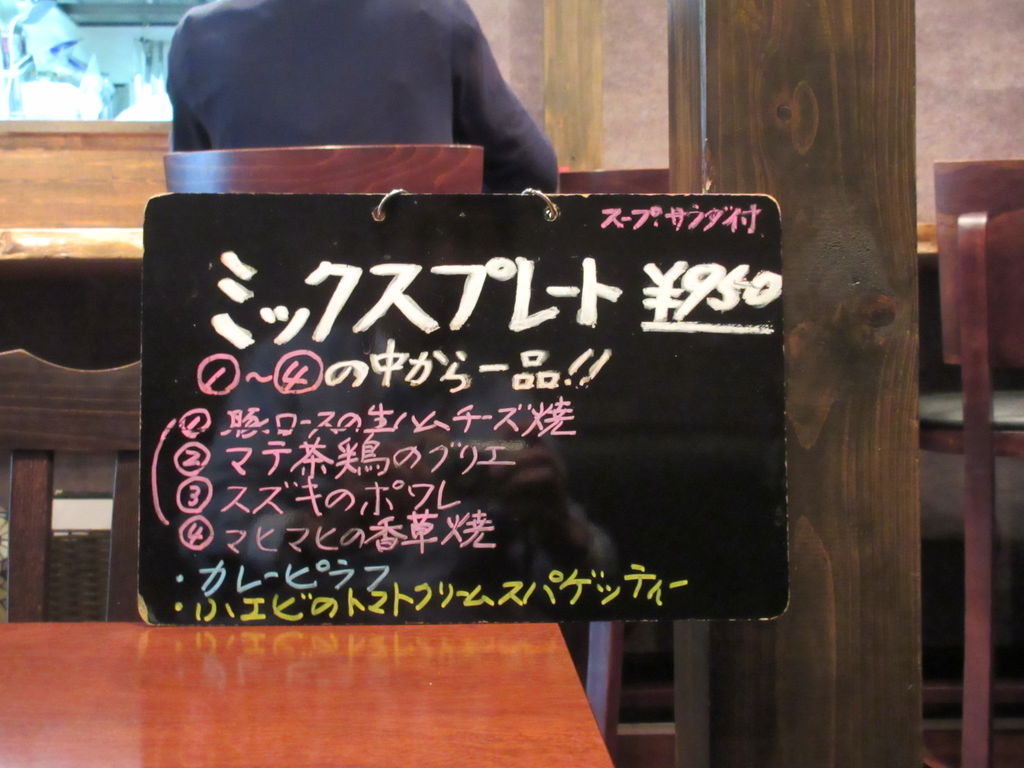 スープ・サラダ付
ミックスプレート ¥950
①～④の中から一品!!
① 豚ロースの生ハムチーズ焼
② マテ茶鶏のグリエ
③ スズキのポワレ
④ マヒマヒの香草焼
・カレーピラフ
・小エビのトマトクリームスパゲッティー